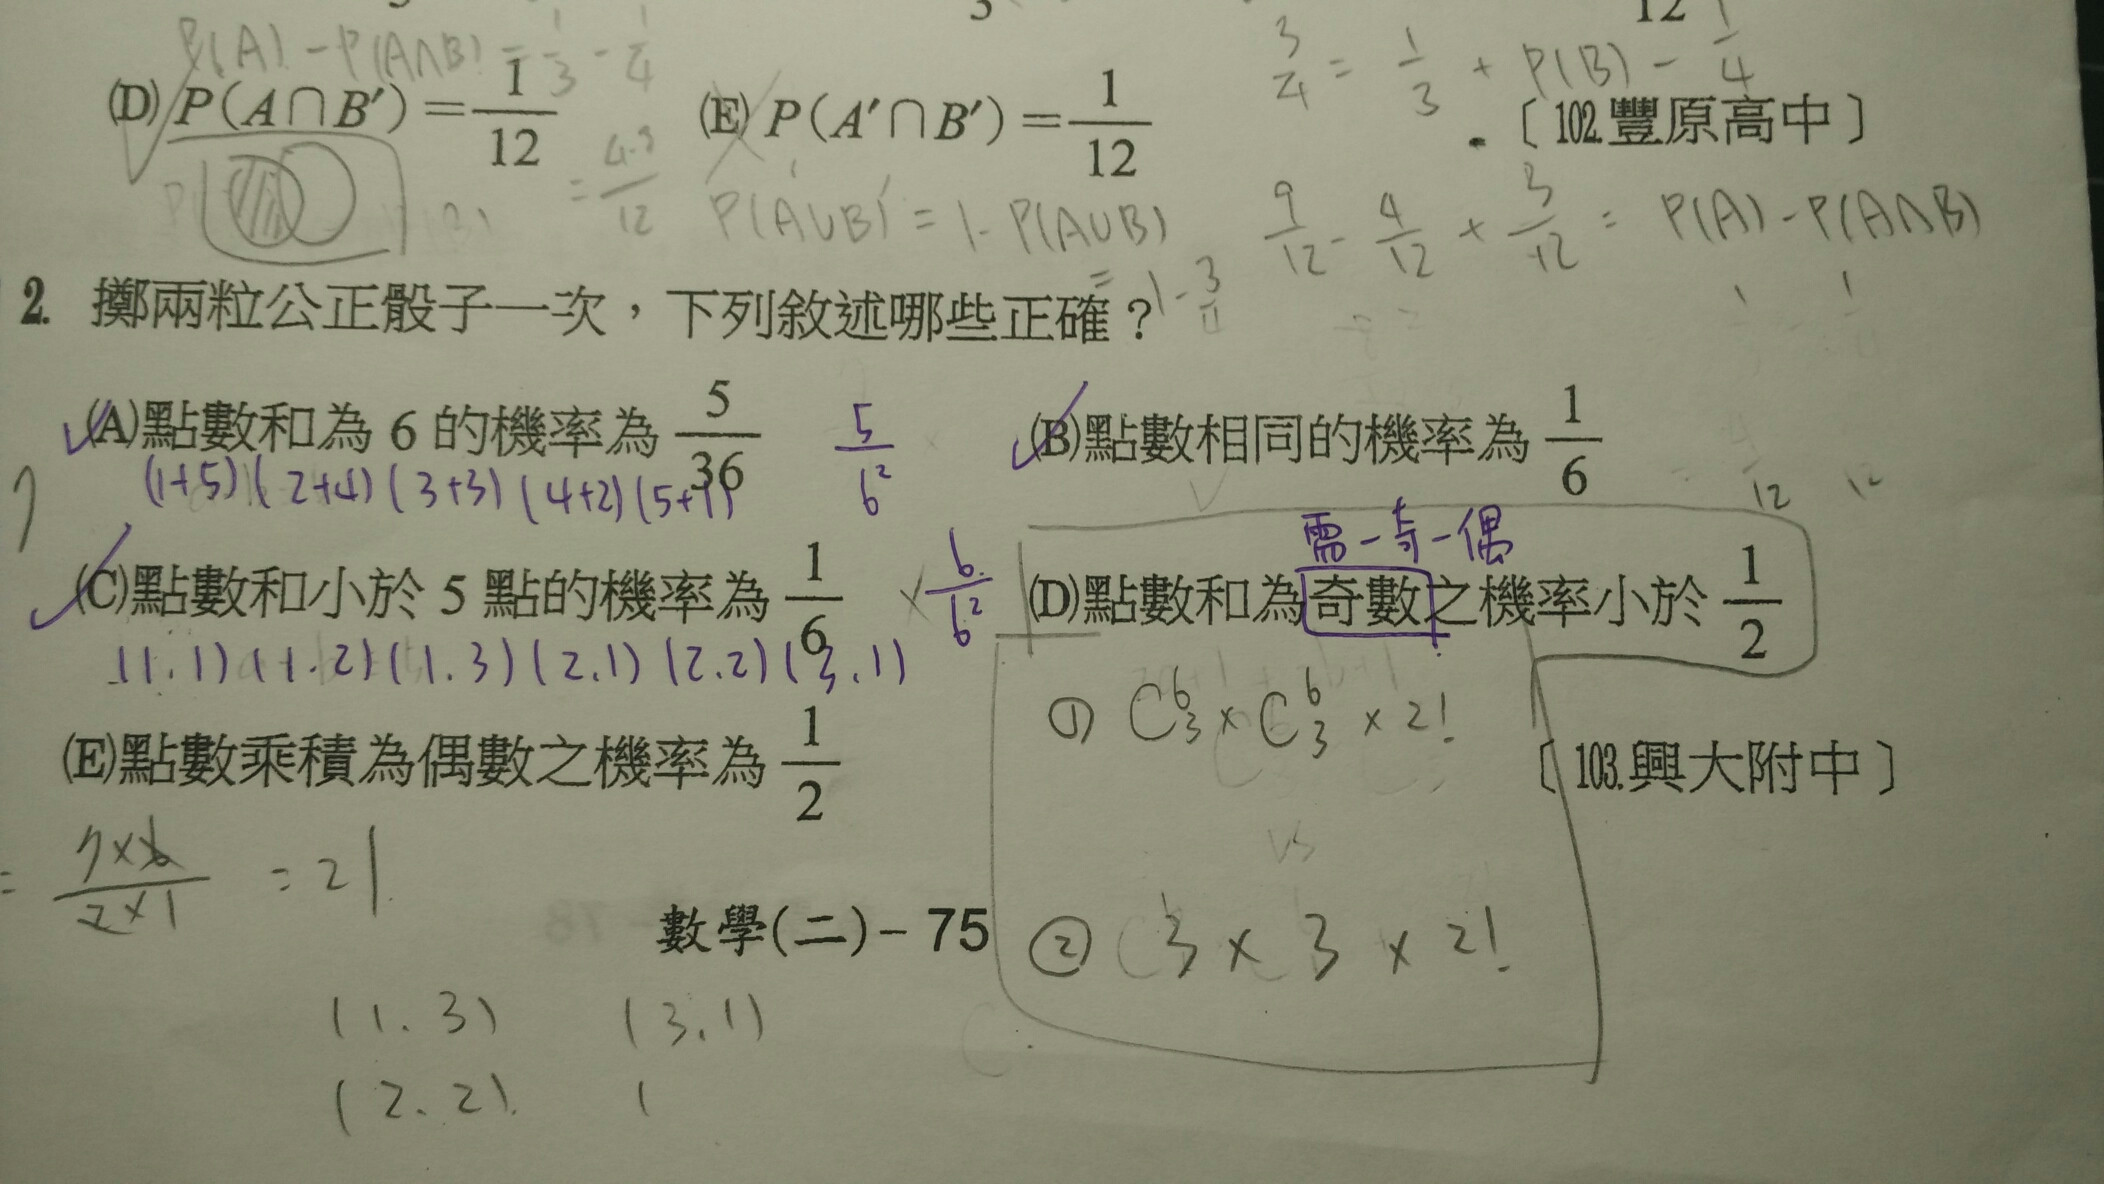 3 12
P(A) - P(A∩B) = 1/3 - 1/4
3/4 = 1/3 + P(B) - 1/4
(D) P(A∩B′) = 1/12 (E) P(A′∩B′) = 1/12 〔102.豐原高中〕
= 4-3/12
P(A∪B)′ = 1 - P(A∪B)
= 1 - 3/4
9/12 - 4/12 + 3/12 = P(A) - P(A∩B)
2. 擲兩粒公正骰子一次，下列敘述哪些正確？
(A)點數和為 6 的機率為 5/36 5/6² (B)點數相同的機率為 1/6
(1+5) (2+4) (3+3) (4+2) (5+1)
12 12
需一奇一偶
(C)點數和小於 5 點的機率為 1/6 × 6/6² (D)點數和為奇數之機率小於 1/2
(1.1) (1.2) (1.3) (2.1) (2.2) (3.1)
① C⁶₃ × C⁶₃ × 2!
(E)點數乘積為偶數之機率為 1/2 〔103.興大附中〕
vs
= 7×6/2×1 = 21
② 3 × 3 × 2!
數學(二)－75
(1.3) (3.1)
(2.2) (